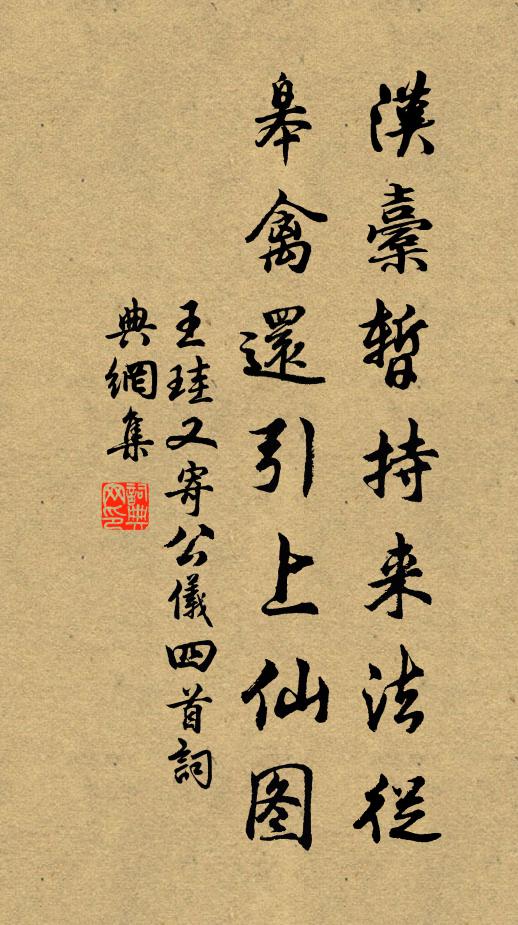 漢橐暫持来法從
皋禽還引上仙图
王珪又寄公儀四首詞
典網集
詞典
网印